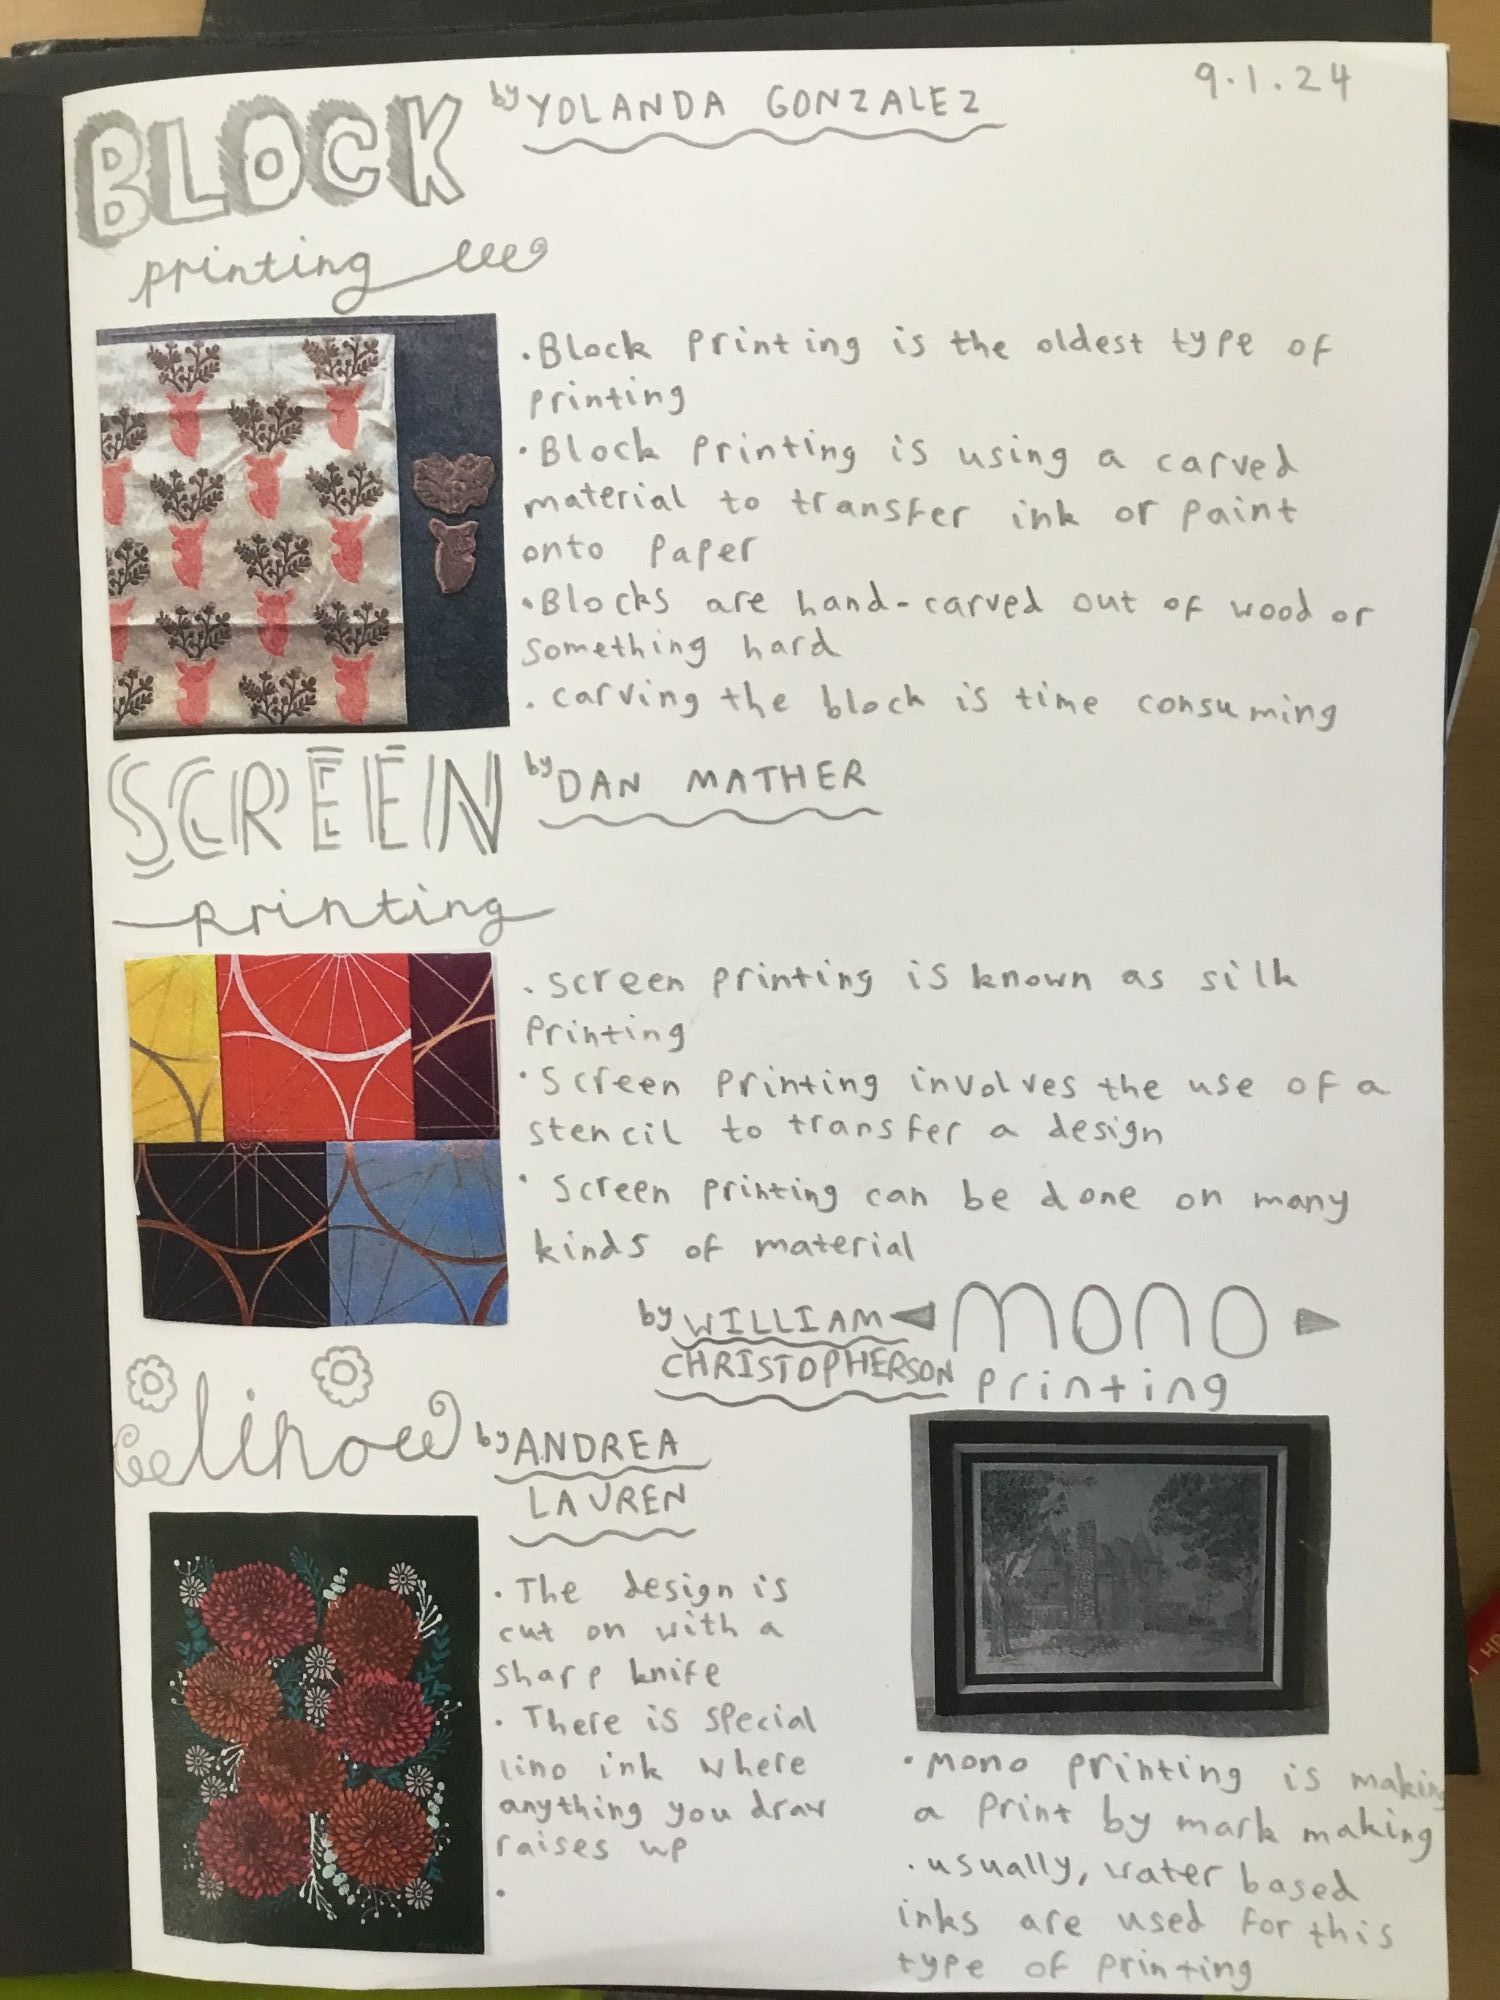 9.1.24
BLOCK by YOLANDA GONZALEZ
printing
. Block printing is the oldest type of
printing
. Block printing is using a carved
material to transfer ink or paint
onto paper
. Blocks are hand-carved out of wood or
something hard
. carving the block is time consuming
SCREEN by DAN MATHER
printing
. screen printing is known as silk
printing
. Screen printing involves the use of a
stencil to transfer a design
. Screen printing can be done on many
kinds of material
by WILLIAM
CHRISTOPHERSON
mono
printing
lino by ANDREA
LAUREN
. The design is
cut on with a
sharp knife
. There is special
lino ink where
anything you draw
raises up
.
. mono printing is making
a print by mark making
. usually, water based
inks are used for this
type of printing